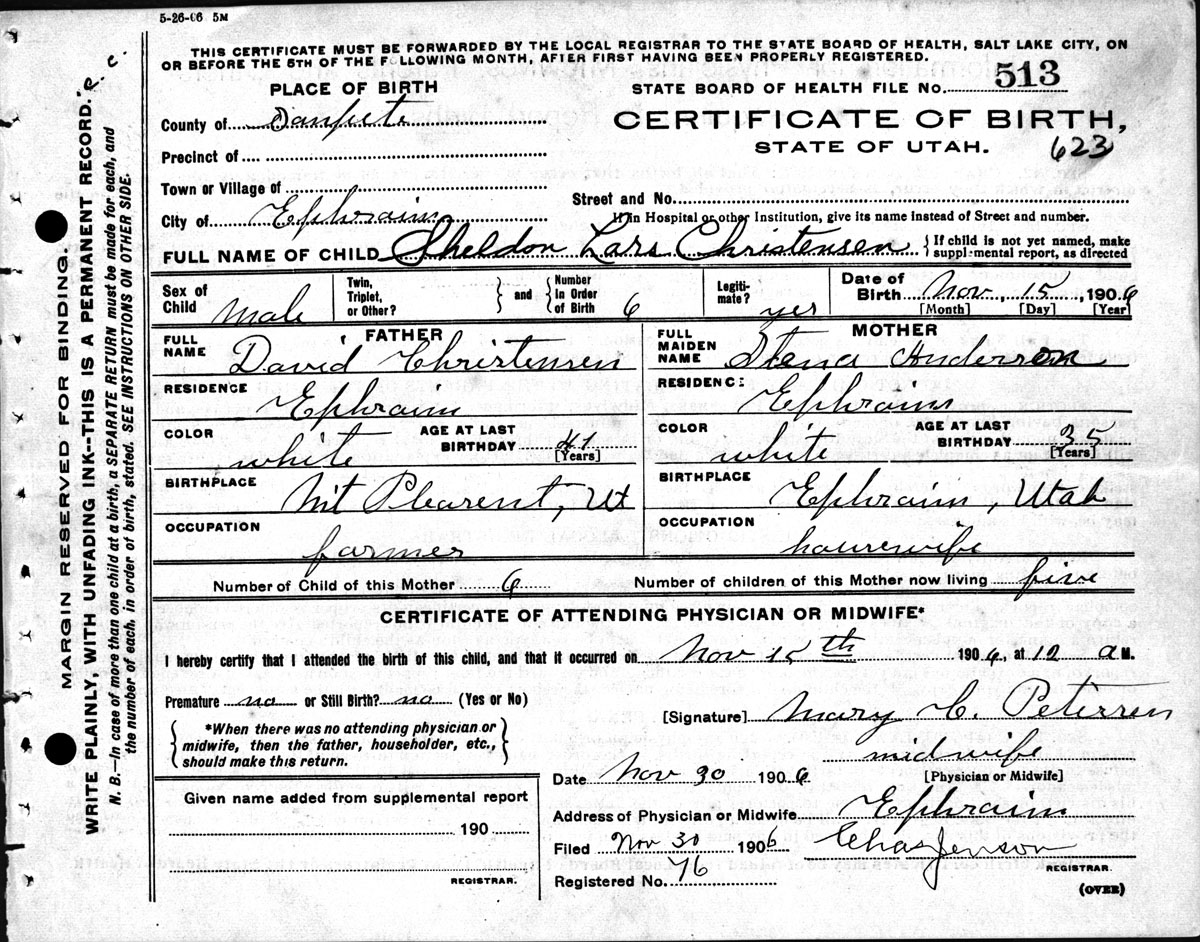 5-26-06 5M
THIS CERTIFICATE MUST BE FORWARDED BY THE LOCAL REGISTRAR TO THE STATE BOARD OF HEALTH, SALT LAKE CITY, ON
OR BEFORE THE 5TH OF THE FOLLOWING MONTH, AFTER FIRST HAVING BEEN PROPERLY REGISTERED.
PLACE OF BIRTH
STATE BOARD OF HEALTH FILE No. 513
County of Sanpete
CERTIFICATE OF BIRTH,
STATE OF UTAH. 623
Precinct of
Town or Village of
Street and No.
City of Ephraim
If in Hospital or other Institution, give its name instead of Street and number.
FULL NAME OF CHILD Sheldon Lars Christensen { If child is not yet named, make
supplemental report, as directed
Sex of Child Male
Twin, Triplet, or Other? } and { Number in Order of Birth 6
Legitimate? yes
Date of Birth Nov, 15, 1906
[Month] [Day] [Year]
FATHER
FULL NAME David Christensen
RESIDENCE Ephraim
COLOR white AGE AT LAST BIRTHDAY 41 [Years]
BIRTHPLACE Mt Pleasent, Ut
OCCUPATION farmer
MOTHER
FULL MAIDEN NAME Stena Anderson
RESIDENCE Ephraim
COLOR white AGE AT LAST BIRTHDAY 35 [Years]
BIRTHPLACE Ephraim, Utah
OCCUPATION housewife
Number of Child of this Mother 6 Number of children of this Mother now living five
CERTIFICATE OF ATTENDING PHYSICIAN OR MIDWIFE*
I hereby certify that I attended the birth of this child, and that it occurred on Nov 15th 1906, at 12 A M.
Premature no or Still Birth? no (Yes or No)
[Signature] Mary C. Petersen
*When there was no attending physician or
midwife, then the father, householder, etc.,
should make this return.
midwife
[Physician or Midwife]
Date Nov 30 1906
Given name added from supplemental report
190
REGISTRAR.
Address of Physician or Midwife Ephraim
Filed Nov 30 1906 Chas Jenson
REGISTRAR.
Registered No. 76
(OVER)
MARGIN RESERVED FOR BINDING.
WRITE PLAINLY, WITH UNFADING INK--THIS IS A PERMANENT RECORD.
N. B.—In case of more than one child at a birth, a SEPARATE RETURN must be made for each, and
the number of each, in order of birth, stated. SEE INSTRUCTIONS ON OTHER SIDE.